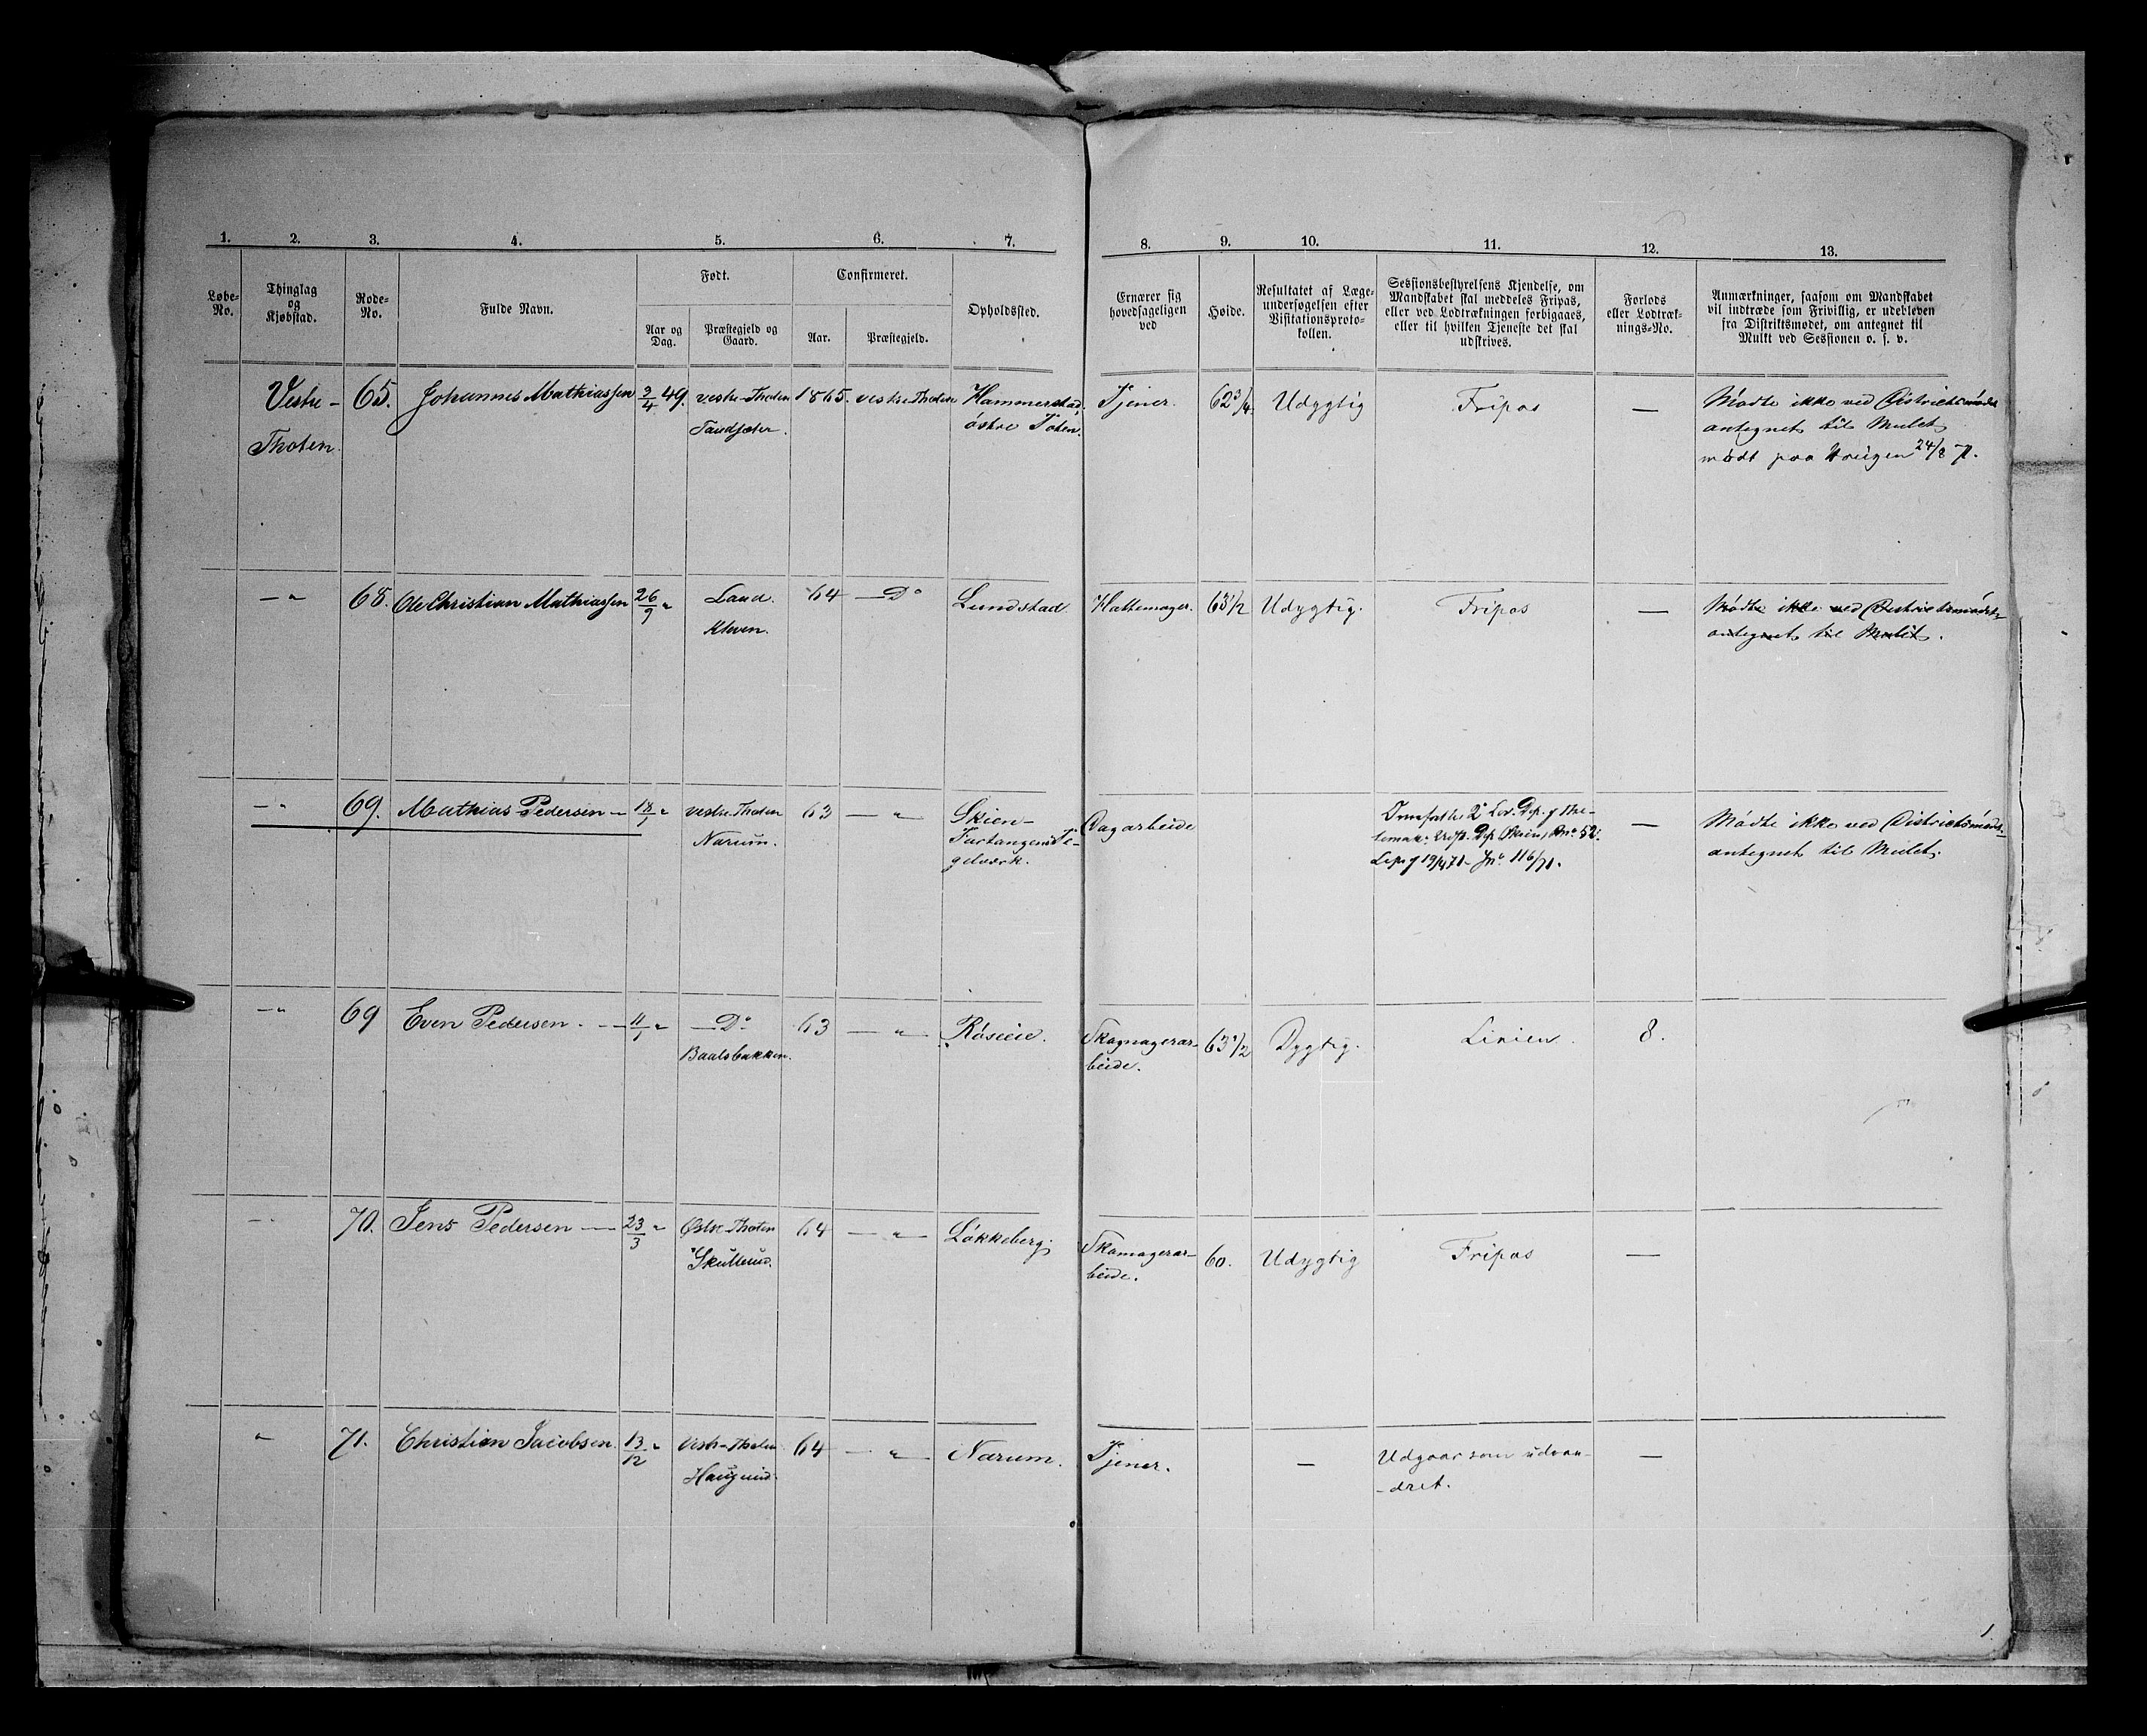 1. 2. 3. 4. 5. 6. 7. 8. 9. 10. 11. 12. 13.
Løbe-No.
Thinglag og Kjøbstad.
Rode-No.
Fulde Navn.
Født.
Aar og Dag.
Præstegjeld og Gaard.
Confirmeret.
Aar.
Præstegjeld.
Opholdssted.
Ernærer sig hovedsageligen ved
Høide.
Resultatet af Læge-undersøgelsen efter Visitationsproto-kollen.
Sessionsbestyrelsens Kjendelse, om Mandskabet skal meddeles Fripas, eller ved Lodtrækningen forbigaaes, eller til hvilken Tjeneste det skal udskrives.
Forlods eller Lodtræk-nings-No.
Anmærkninger, saasom om Mandskabet vil indtræde som Frivillig, er udebleven fra Distriktsmødet, om antegnet til Mulkt ved Sessionen o. s. v.
Vestre- 65. Johannes Mathiassen 2/4 49. vestre-Thoten 1865. vestre Thoten Hammerstad, Tjener. 62 3/4 Udygtig Fripas — Mødte ikke ved Districtsmødet
Thoten. østre Toten. antegnet til Mulct
mødt paa Krigen 24/8 71.
— " 68. Ole Christian Mathiassen 26/9 " Land. 64 — Do Lundstad Hattemager. 63 1/2 Udygtig. Fripas — Mødte ikke ved Districtsmødet
Kleven. antegnet til Mulct.
— " 69. Mathias Pedersen — 18/1 " vestre-Thoten 63 — " Skien- Dagarbeide — Mødte ikke ved Districtsmødet
Narum. gelværk. antegnet til Mulct.
— " 69 Even Pedersen. — 11/1 " — Do 63 — " — Røseie. Skomagerar- 63 1/2 Dygtig. Linien. 8.
Baalsbakken. beide.
— " 70. Jens Pedersen — 23/3 " Østre-Thoten 64 — " — Løkkeberg. Skomagerar- 60. Udygtig Fripas —
beide.
" 71. Christian Jacobsen 13/12 " Vestre-Thoten 64 — " — Narum. Tjener. — Udgaar som udvan- —
-dret.